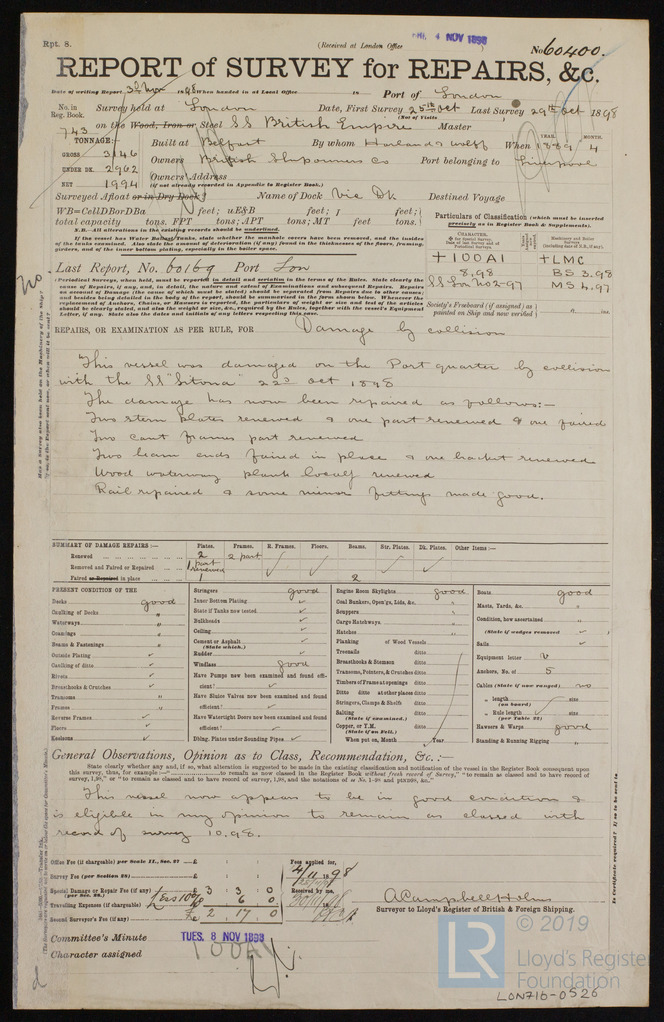 Rpt. 8.
(Received at London Office
4 NOV 1898
No 60400.
REPORT of SURVEY for REPAIRS, &c.
Date of writing Report 3d Nov 1898 When handed in at Local Office 18 Port of London
No. in Reg. Book. 743
Survey held at London Date, First Survey 25th Oct Last Survey 29th Oct 1898
(No. of Visits
on the Wood, Iron or Steel SS British Empire Master
TONNAGE:—
GROSS 3146
UNDER DK. 2962
NET 1994
Built at Belfast By whom Harland & Wolff When 1889 4
YEAR. MONTH.
Owners British Shipowners Co Port belonging to Liverpool
Owners Address
(if not already recorded in Appendix to Register Book.)
Surveyed Afloat or in Dry Dock? Name of Dock Vic Dk Destined Voyage
WB=CellDBorDBa feet; uE&B feet; f feet;
total capacity tons. FPT tons; APT tons; MT feet tons.
N.B.—All alterations in the existing records should be underlined.
If the vessel has Water Ballast Tanks, state whether the manhole covers have been removed, and the insides
of the tanks examined. Also state the amount of deterioration (if any) found in the thicknesses of the floors, framing,
girders, and of the inner bottom plating, especially in the boiler space.
Particulars of Classification (which must be inserted
precisely as in Register Book & Supplements).
+100A1
8,98
SS Lon No2-97
+LMC
BS 3.98
MS 4.97
Society's Freeboard (if assigned) as
painted on Ship and now verified
Last Report, No. 60169 Port Lon
Periodical Surveys, when held, must be reported in detail and seriatim in the terms of the Rules. State clearly the
cause of Repairs, if any, and, in detail, the nature and extent of Examinations and subsequent Repairs. Repairs
on account of Damage (the cause of which must be stated) should be separated from Repairs due to other causes;
and besides being detailed in the body of the report, should be summarized in the form shown below. Whenever the
replacement of Anchors, Chains, or Hawsers is reported, the particulars of weight or size and test of the articles
should be clearly stated, and also the weight or size, &c., required by the Rules, together with the vessel's Equipment
Letter, if any. State also the dates and initials of any letters respecting this case.
REPAIRS, OR EXAMINATION AS PER RULE, FOR Damage by collision
No
This vessel was damaged on the Port quarter by collision
with the SS "Sitona" 22d Oct 1898
The damage has now been repaired as follows:—
Two stern plates renewed & one part renewed & one faired
Two cant frames part renewed
Two beam ends faired in place & one bracket renewed
Wood waterway plank locally renewed
Rail repaired & some minor fittings made good.
SUMMARY OF DAMAGE REPAIRS:— Plates. Frames. R. Frames. Floors. Beams. Str. Plates. Dk. Plates. Other Items:—
Renewed 2 2 part
Removed and Faired or Repaired 1 part renewed
Faired or Repaired in place 1 2
PRESENT CONDITION OF THE
Decks good
Caulking of Decks "
Waterways "
Coamings "
Beams & Fastenings "
Outside Plating
Caulking of ditto
Rivets
Breasthooks & Crutches
Transoms "
Frames "
Reverse Frames
Floors
Keelsons
Stringers good
Inner Bottom Plating
State if Tanks now tested
Bulkheads
Ceiling
Cement or Asphalt
(State which.)
Rudder
Windlass good
Have Pumps now been examined and found effi-
cient?
Have Sluice Valves now been examined and found
efficient?
Have Watertight Doors now been examined and found
efficient?
Dblng. Plates under Sounding Pipes
Engine Room Skylights good
Coal Bunkers, Open'gs, Lids, &c. "
Scuppers "
Cargo Hatchways "
Hatches "
Planking of Wood Vessels
Treenails ditto
Breasthooks & Stemson ditto
Transoms, Pointers, & Crutches ditto
Timbers of Frame at openings ditto
Ditto ditto at other places ditto
Stringers, Clamps & Shelfs ditto
Salting ditto
(State if examined.)
Copper, or Y.M. ditto
(State if on Felt.)
When put on, Month Year
Boats good
Masts, Yards, &c. "
Condition, how ascertained "
(State if wedges removed
Sails
Equipment letter V
Anchors, No. of 5
Cables (State if now ranged) no
" length size
(on board)
" Rule length size
(per Table 22)
Hawsers & Warps good
Standing & Running Rigging "
General Observations, Opinion as to Class, Recommendation, &c. :—
State clearly whether any, and if so, what alteration is suggested to be made in the existing classification and notification of the vessel in the Register Book consequent upon
This vessel now appears to be in good condition &
is eligible in my opinion to remain as classed with
record of survey 10.98.
Office Fee (if chargeable) per Scale II., Sec. 27 £
Survey Fee (per Section 28) £
Special Damage or Repair Fee (if any) £ 3 3 0
(per Sec. 28.)
Less 10% 6 0
Travelling Expenses (if chargeable) £
£ 2 17 0
Second Surveyor's Fee (if any) £
Fees applied for,
4/11 1898
Received by me,
A Campbell Holms
Surveyor to Lloyd's Register of British & Foreign Shipping.
Committee's Minute TUES. 8 NOV 1898
Character assigned 100A1
LR
© 2019
Lloyd's Register
Foundation
LON716-0526